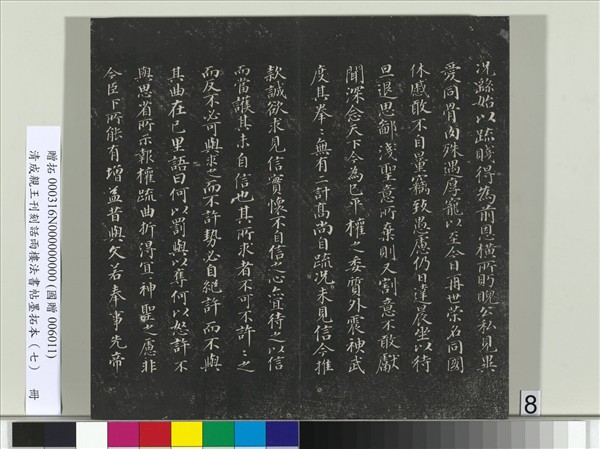 況繇始以疏賤得為前恩橫所盻睨公私見異
愛同骨肉殊遇厚寵以至今日再世榮名同國
休慼敢不自量竊致愚慮仍日達晨坐以待
旦退思鄙淺聖意所棄則又割意不敢獻
聞深念天下今為已平權之委質外震神武
度其拳〻無有二計高尚自疏況未見信今推
款誠欲求見信實懷不自信之心亦宜待之以信
而當護其未自信也其所求者不可不許〻之
而反不必可與求之而不許勢必自絕許而不與
其曲在己里語曰何以罰與以奪何以怒許不
與思省所示報權疏曲折得宜神聖之慮非
今臣下所能有增益昔與文若奉事先帝
贈拓 000316N000000000 (國贈 006011)
清成親王刊刻詒雨樓法書帖墨拓本（七） 冊
8